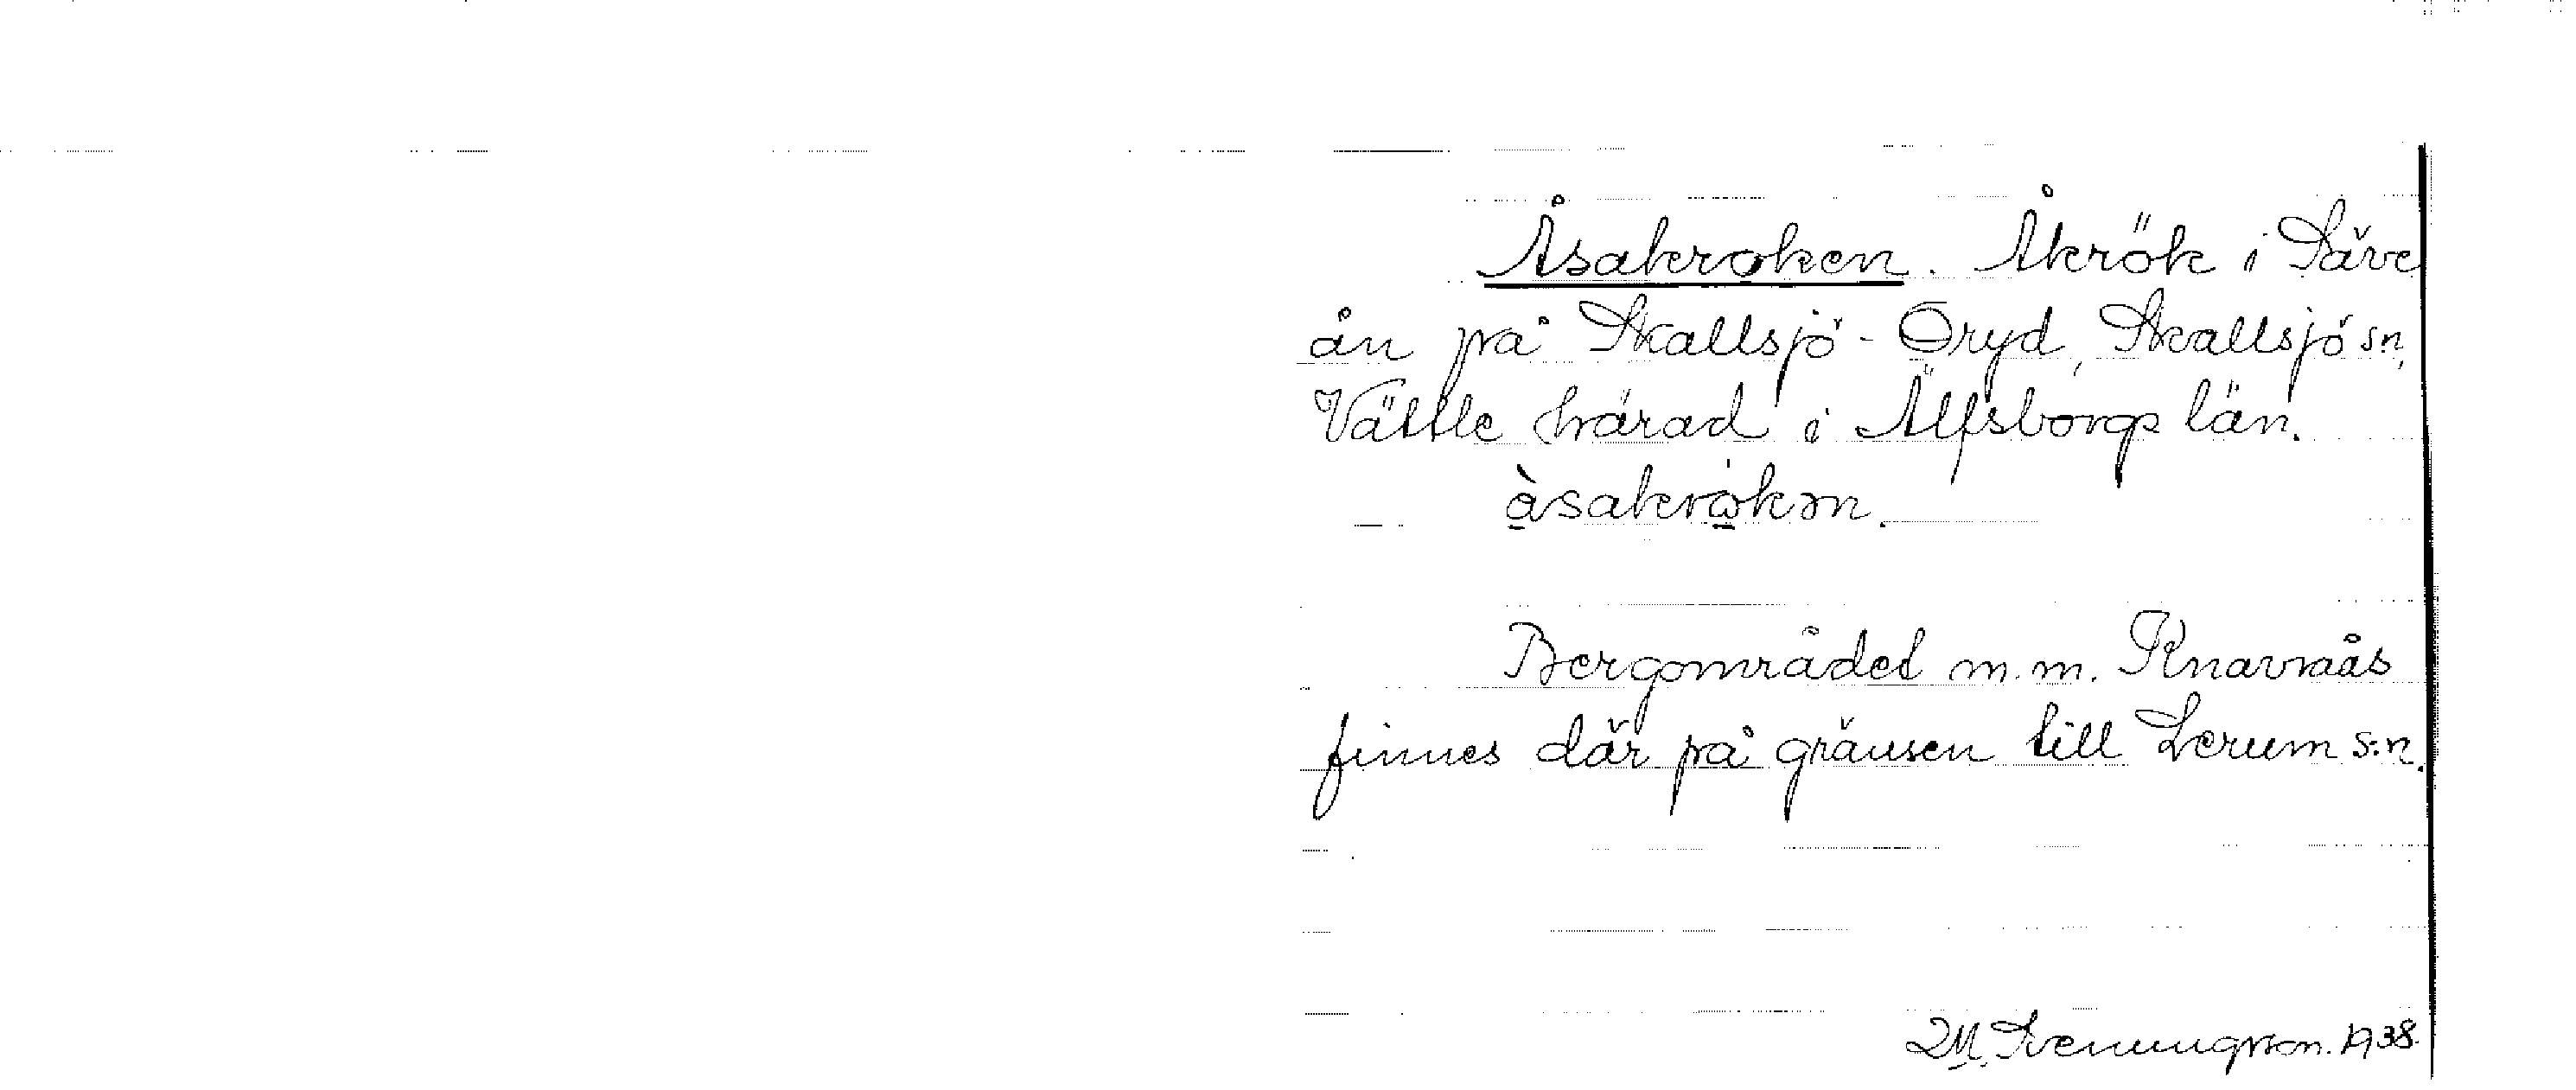 Åsakroken. Åkrök i Säve
ån på Skallsjö-Öryd, Skallsjö sn,
Vättle härad i Älfsborgs län.
àsakrokən.
Bergområdet m.m. Knavraås
finnes där på gränsen till Lerum s:n.
M. Svenungsson. 1938.